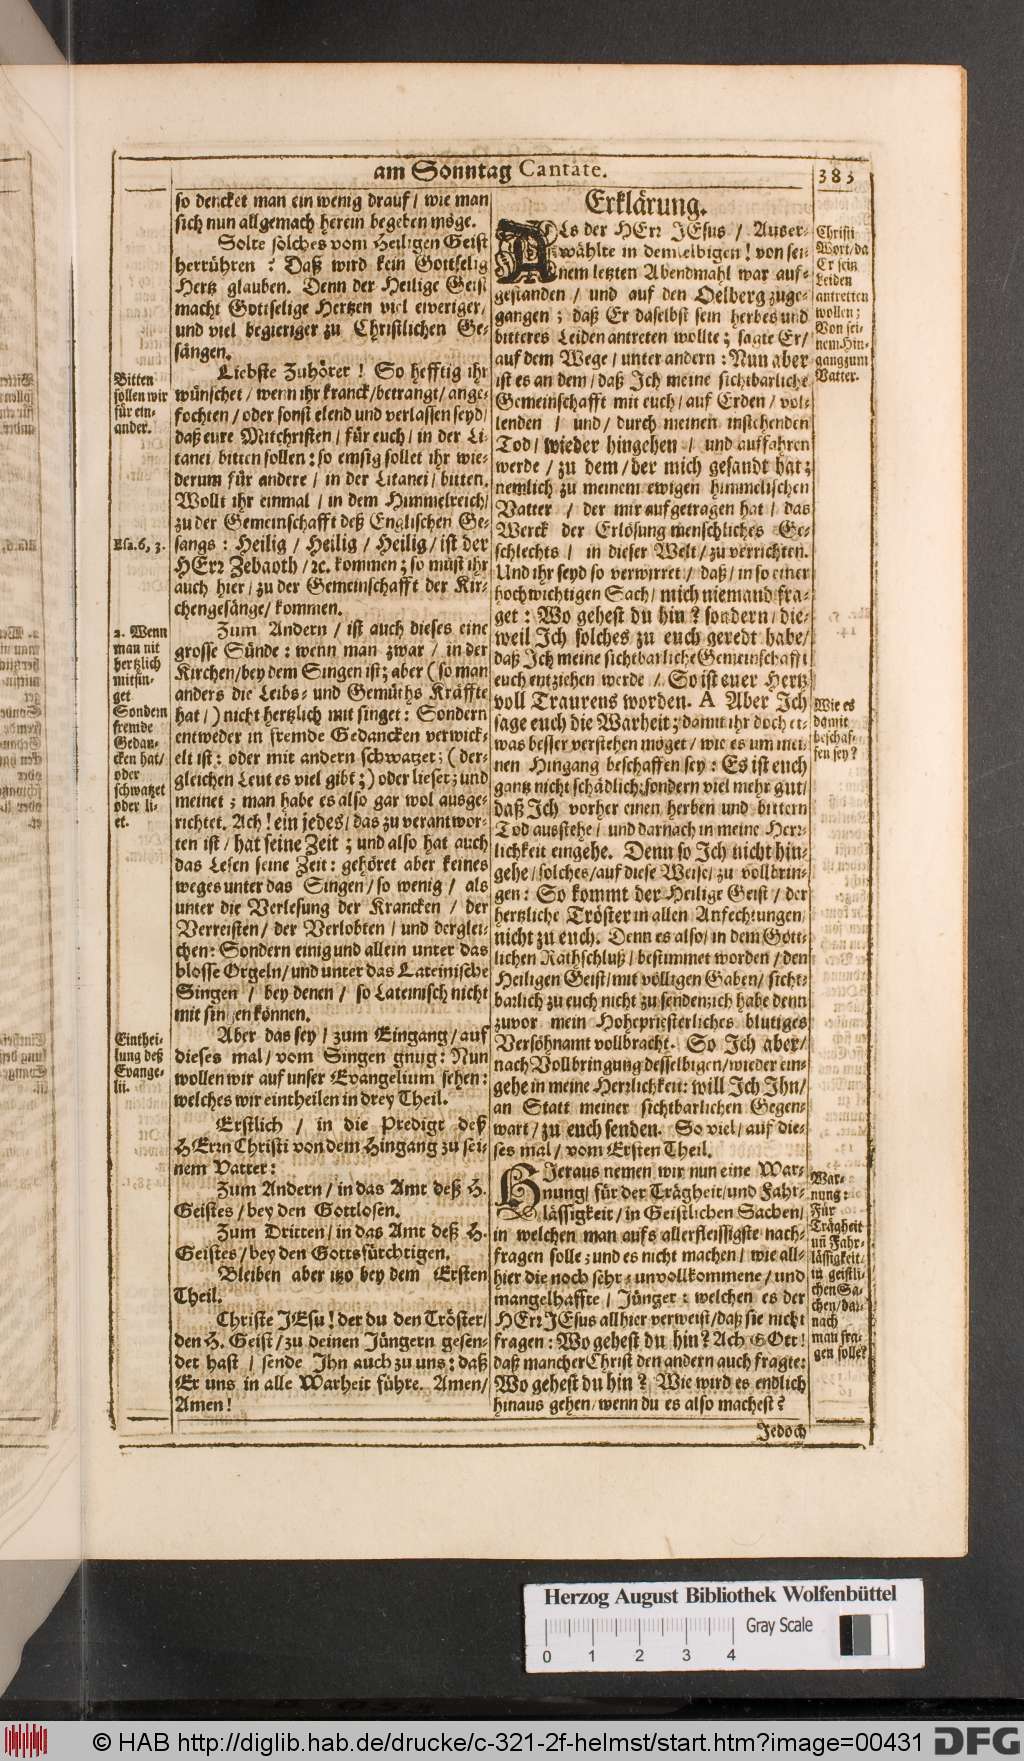 am Sonntag Cantate.
383
so dencket man ein wenig drauf / wie man
sich nun allgemach herein begeben möge.
Solte solches vom Heiligen Geist
herrühren? Daß wird kein Gottselig
Hertz glauben. Denn der Heilige Geist
macht Gottselige Hertzen viel eiveriger/
und viel begieriger zu Christlichen Ge-
sängen.
Bitten
sollen wir
für ein-
ander.
Liebste Zuhörer! So hefftig ihr
wünschet / wenn ihr kranck / betrangt / ange-
fochten / oder sonst elend und verlassen seyd/
daß eure Mitchristen / für euch / in der Li-
tanei bitten sollen: so emsig sollet ihr wie-
derum für andere / in der Litanei / bitten.
Wollt ihr einmal / in dem Himmelreich/
zu der Gemeinschafft deß Englischen Ge-
Esa. 6, 3.
sangs: Heilig / Heilig / Heilig / ist der
HErr Zebaoth / ꝛc. kommen; so müst ihr
auch hier / zu der Gemeinschafft der Kir-
chengesänge / kommen.
2. Wenn
man nit
hertzlich
mitsin-
get
Sondern
fremde
Gedan-
cken hat/
oder
schwatzet
oder li-
et.
Zum Andern / ist auch dieses eine
grosse Sünde: wenn man zwar / in der
Kirchen / bey dem Singen ist; aber (so man
anders die Leibs- und Gemüths Kräffte
hat /) nicht hertzlich mit singet: Sondern
entweder in fremde Gedancken verwick-
elt ist: oder mit andern schwatzet; (der-
gleichen Leut es viel gibt;) oder lieset; und
meinet; man habe es also gar wol ausge-
richtet. Ach! ein jedes / das zu verantwor-
ten ist / hat seine Zeit; und also hat auch
das Lesen seine Zeit: gehöret aber keines
weges unter das Singen / so wenig / als
unter die Verlesung der Krancken / der
Verreisten / der Verlobten / und derglei-
chen: Sondern einig und allein unter das
blosse Orgeln / und unter das Lateinische
Singen / bey denen / so Lateinisch nicht
mit singen können.
Einthei-
lung deß
Evange-
lii.
Aber das sey / zum Eingang / auf
dieses mal / vom Singen gnug: Nun
wollen wir auf unser Evangelium sehen:
welches wir eintheilen in drey Theil.
Erstlich / in die Predigt deß
HErrn Christi von dem Hingang zu sei-
nem Vatter:
Zum Andern / in das Amt deß H.
Geistes / bey den Gottlosen.
Zum Dritten / in das Amt deß H.
Geistes / bey den Gottsfürchtigen.
Bleiben aber itzo bey dem Ersten
Theil.
Christe JEsu! der du den Tröster/
den H. Geist / zu deinen Jüngern gesen-
det hast / sende Ihn auch zu uns: daß
Er uns in alle Warheit führe. Amen/
Amen!
Erklärung.
ALs der HErr JEsus / Auser-
wählte in demselbigen! von sei-
nem letzten Abendmahl war auf-
gestanden / und auf den Oelberg zuge-
gangen; daß Er daselbst sein herbes und
bitteres Leiden antreten wollte; sagte Er/
auf dem Wege / unter andern: Nun aber
ist es an dem / daß Ich meine sichtbarliche
Gemeinschafft mit euch / auf Erden / vol-
lenden / und / durch meinen instehenden
Tod / wieder hingehen / und auffahren
werde / zu dem / der mich gesandt hat;
nemlich zu meinem ewigen himmelischen
Vatter / der mir aufgetragen hat / das
Werck der Erlösung menschliches Ge-
schlechts / in dieser Welt / zu verrichten.
Und ihr seyd so verwirret / daß / in so einer
hochwichtigen Sach / mich niemand fra-
get: Wo gehest du hin? sondern / die-
weil Ich solches zu euch geredt habe/
daß Ich meine sichtbarliche Gemeinschafft
euch entziehen werde / So ist euer Hertz
voll Traurens worden. A Aber Ich
sage euch die Warheit; damit ihr doch et-
was besser verstehen möget / wie es um mei-
nen Hingang beschaffen sey: Es ist euch
gantz nicht schädlich; sondern viel mehr gut/
daß Ich vorher einen herben und bittern
Tod ausstehe / und darnach in meine Herr-
lichkeit eingehe. Denn so Ich nicht hin-
gehe / solches / auf diese Weise / zu vollbrin-
gen: So kommt der Heilige Geist / der
hertzliche Tröster in allen Anfechtungen/
nicht zu euch. Denn es also / in dem Gött-
lichen Rathschluß / bestimmet worden / den
Heiligen Geist / mit völligen Gaben / sicht-
barlich zu euch nicht zu senden; ich habe denn
zuvor mein Hohepriesterliches blutiges
Versöhnamt vollbracht. So Ich aber/
nach Vollbringung desselbigen / wieder ein-
gehe in meine Herrlichkeit: will Ich Ihn/
an Statt meiner sichtbarlichen Gegen-
wart / zu euch senden. So viel / auf die-
ses mal / vom Ersten Theil.
HIeraus nemen wir nun eine War-
nung / für der Trägheit / und Fahr-
lässigkeit / in Geistlichen Sachen/
in welchen man aufs allerfleissigste nach-
fragen solle; und es nicht machen / wie all-
hier die noch sehr-unvollkommene / und
mangelhaffte / Jünger: welchen es der
HErr JEsus allhier verweist / daß sie nicht
fragen: Wo gehest du hin? Ach GOtt!
daß mancher Christ den andern auch fragte:
Wo gehest du hin? Wie wird es endlich
hinaus gehen / wenn du es also machest?
Jedoch
Christi
Wort / da
Er sein
Leiden
antretten
wollen;
Von sei-
nem Hin-
gang zum
Vatter.
Wie es
damit
beschaf-
fen sey?
War-
nung:
Für
Trägheit
uñ Fahr-
lässigkeit/
in geistli-
chen Sa-
chen / dar-
nach
man fra-
gen solle?
Herzog August Bibliothek Wolfenbüttel
Gray Scale
0 1 2 3 4
© HAB http://diglib.hab.de/drucke/c-321-2f-helmst/start.htm?image=00431
DFG